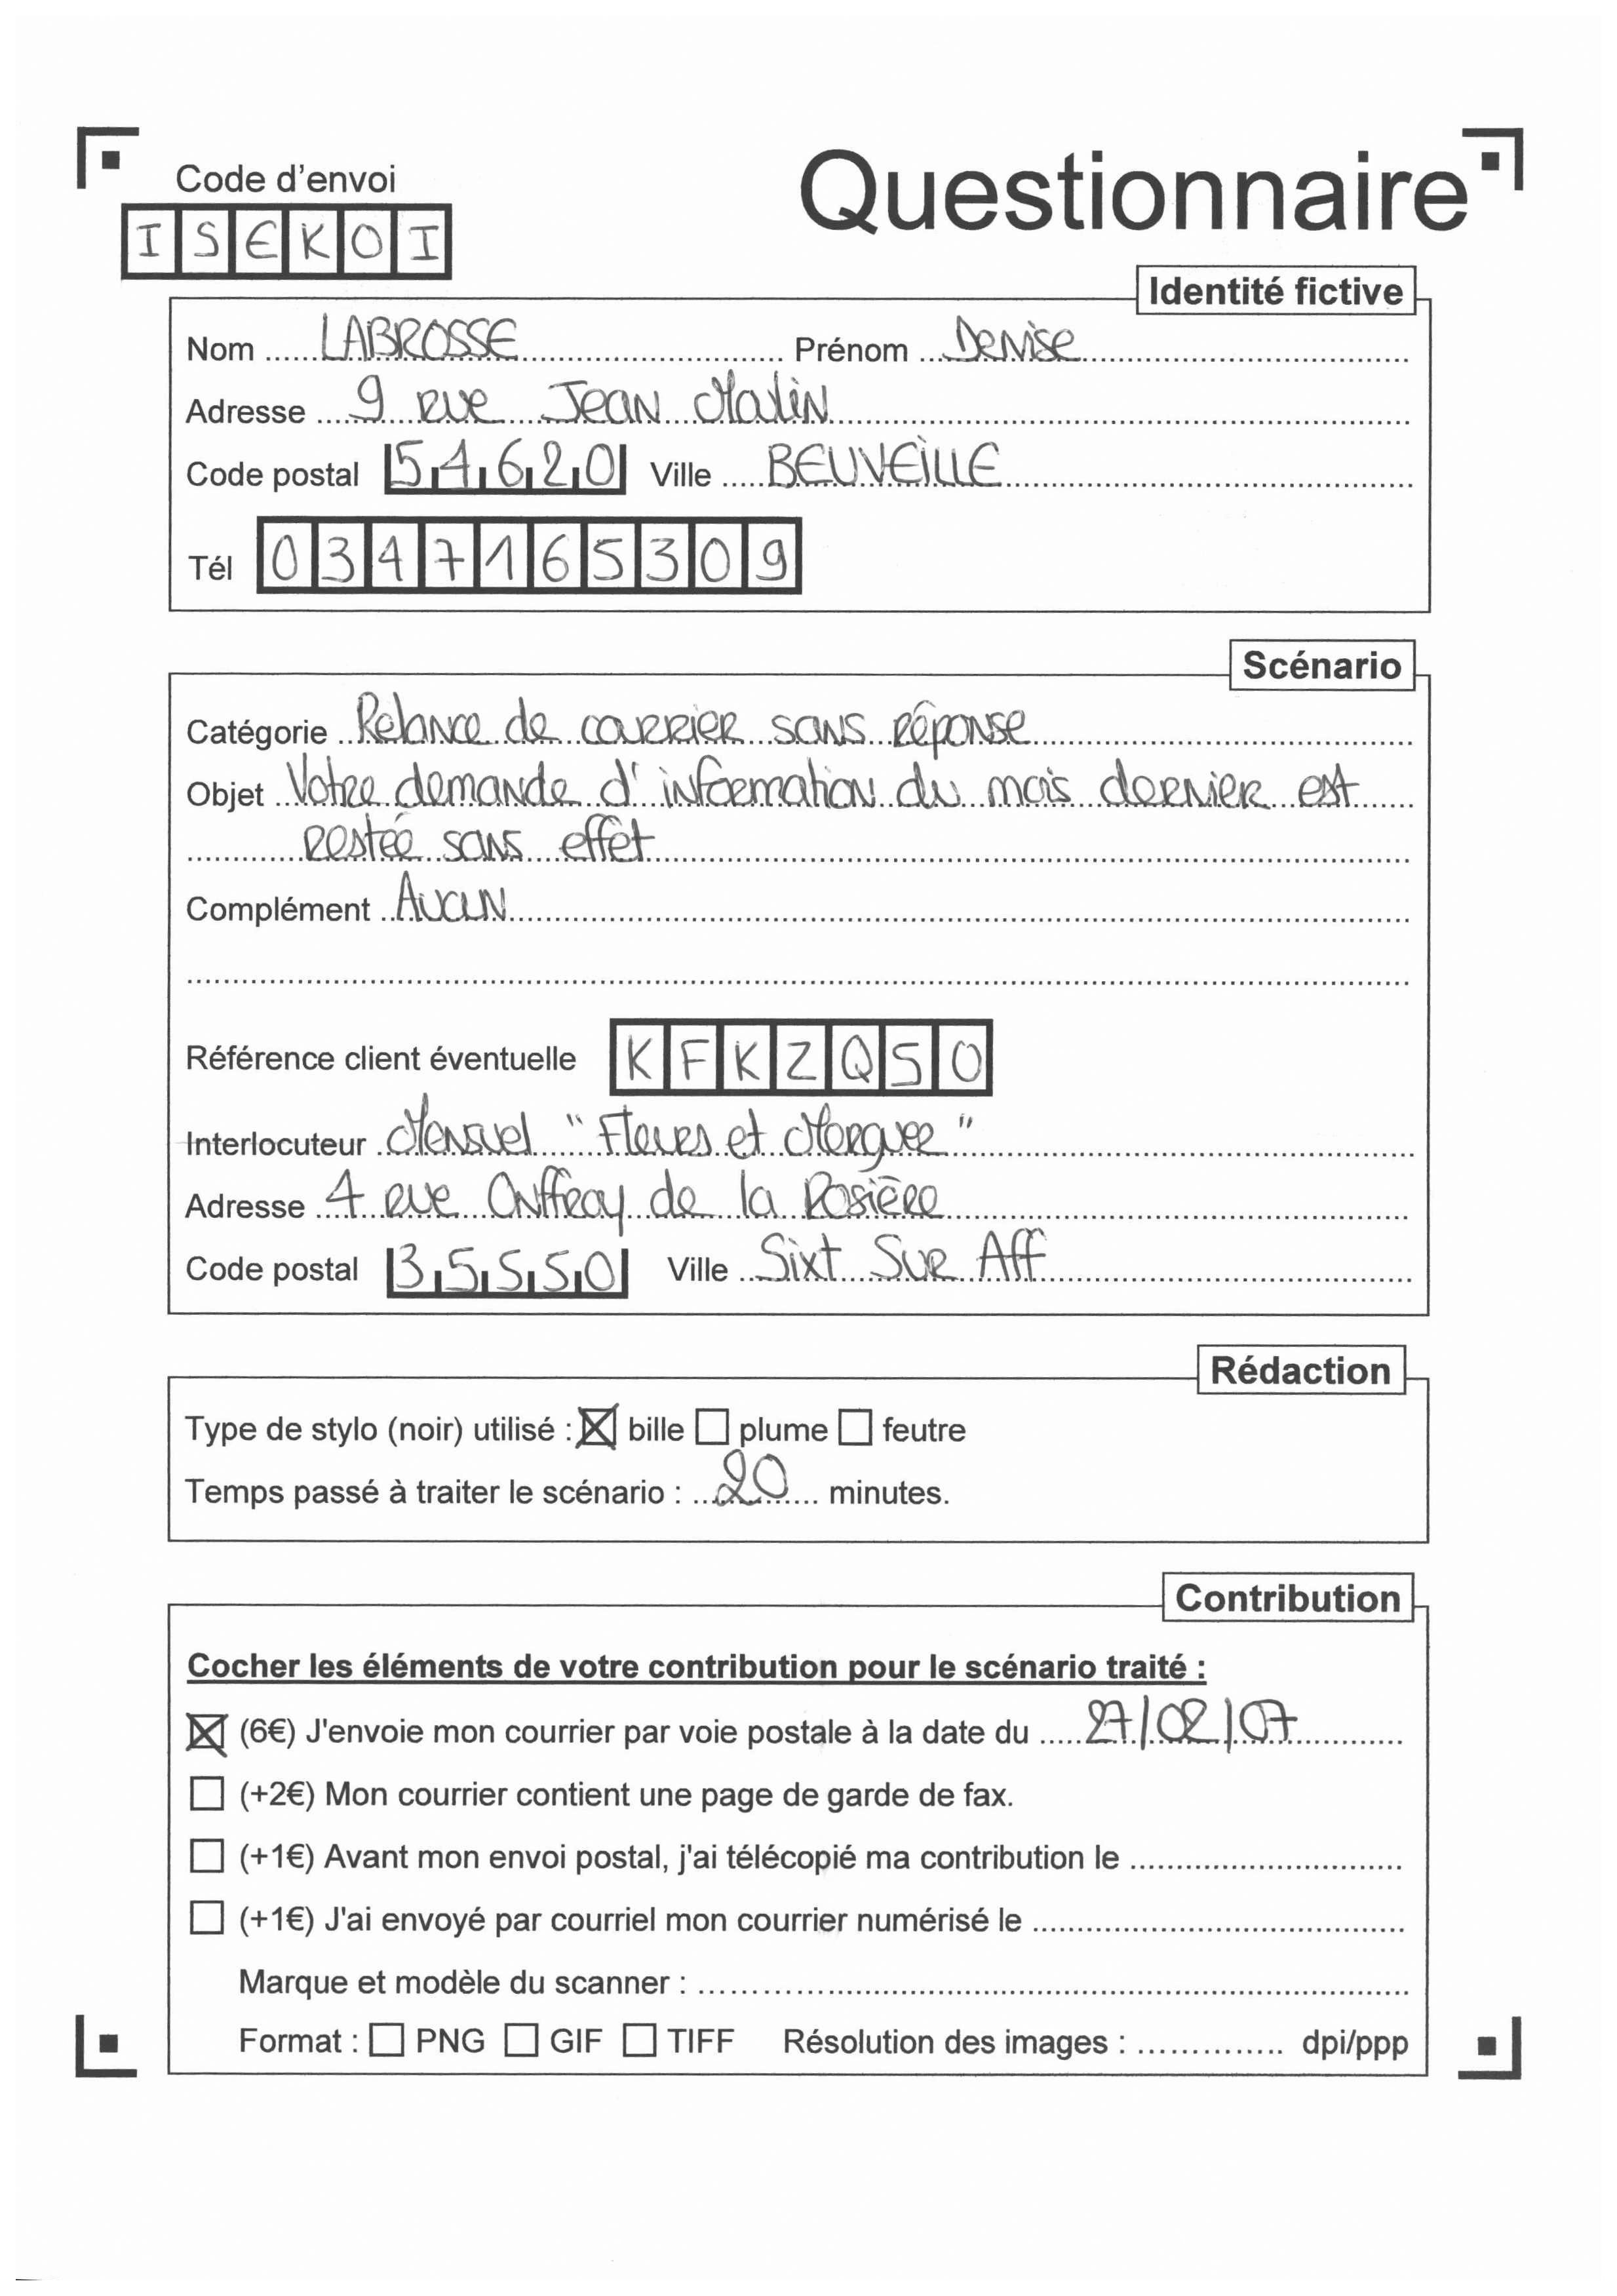 Code d'envoi
Questionnaire
ISEKOI
Identité fictive
Nom ...... LABROSSE ...... Prénom ... Denise ......
Adresse ... 9 rue Jean Malin ......
Code postal 54620 Ville ..... BEUVEILLE ......
Tél 0347165309
Scénario
Catégorie .. Relance de courrier sans réponse ......
Objet .. Votre demande d'information du mois dernier est ......
...... restée sans effet ......
Complément .. Aucun ......
Référence client éventuelle KFKZQSO
Interlocuteur . Mensuel "Fleurs et Marguer" ......
Adresse ... 4 rue Onffray de la Rosière ......
Code postal 35550 Ville .. Sixt Sur Aff ......
Rédaction
Type de stylo (noir) utilisé : ☒ bille ☐ plume ☐ feutre
Temps passé à traiter le scénario : .. 20 ... minutes.
Contribution
Cocher les éléments de votre contribution pour le scénario traité :
☒ (6€) J'envoie mon courrier par voie postale à la date du ..... 27/02/07 ......
☐ (+2€) Mon courrier contient une page de garde de fax.
☐ (+1€) Avant mon envoi postal, j'ai télécopié ma contribution le ......
☐ (+1€) J'ai envoyé par courriel mon courrier numérisé le ......
Marque et modèle du scanner : ......
Format : ☐ PNG ☐ GIF ☐ TIFF Résolution des images : ...... dpi/ppp